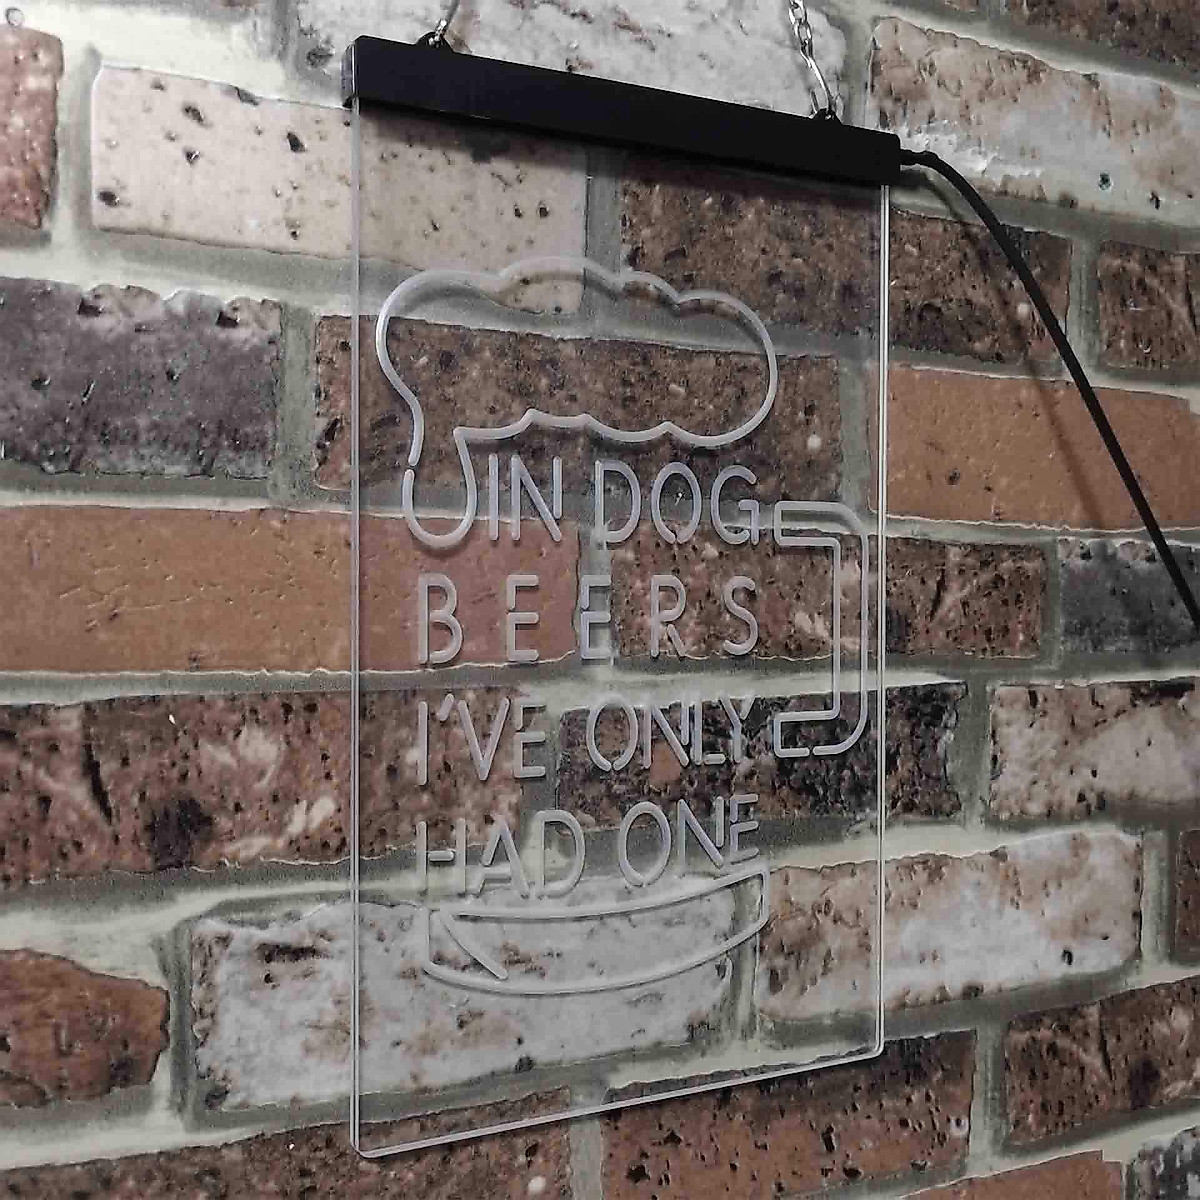 IN DOG
BEERS
I'VE ONLY
HAD ONE